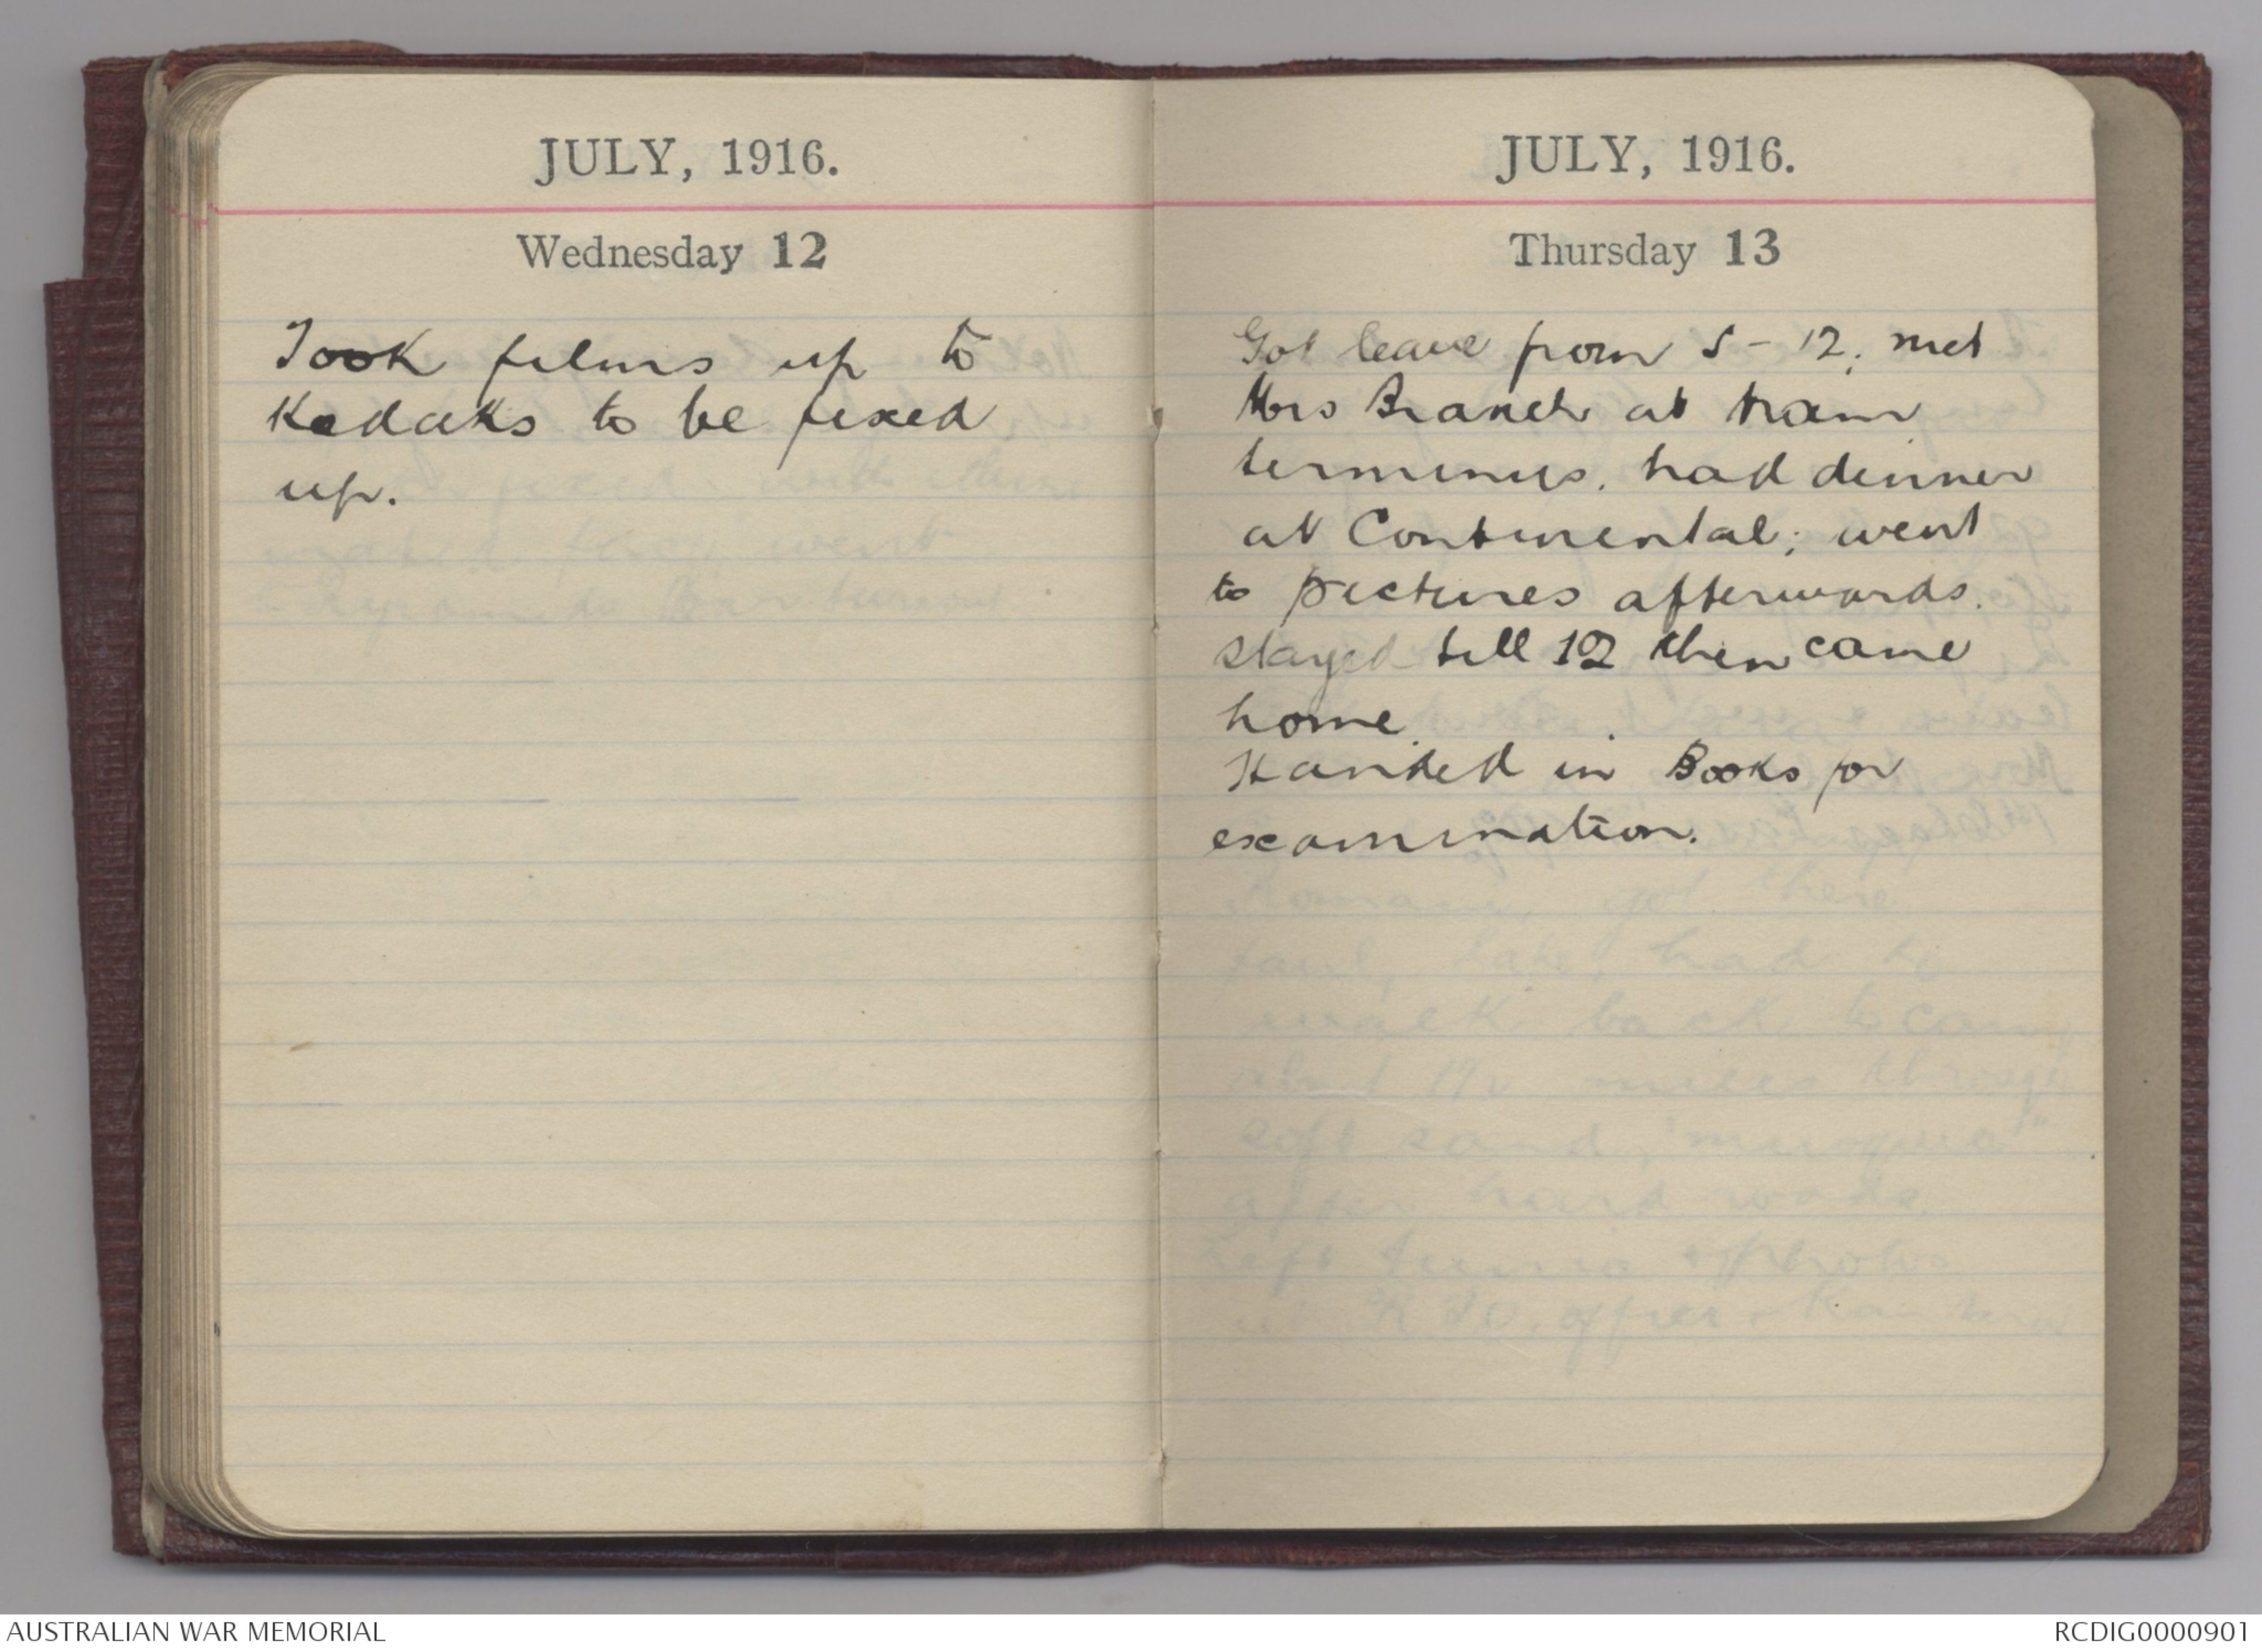 JULY, 1916.
Wednesday 12
Took films up to
Kodaks to be fixed
up.
JULY, 1916.
Thursday 13
Got leave from 5-12, met
Mrs Branch at tram
terminus, had dinner
at Continental; went
to pictures afterwards.
stayed till 12 then came
home.
Handed in Books for
examination.
AUSTRALIAN WAR MEMORIAL
RCDIG0000901